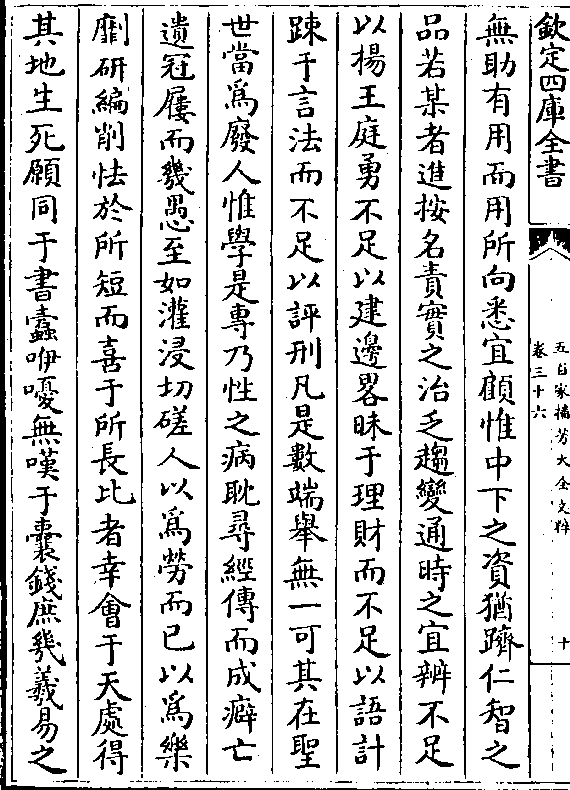 欽定四庫全書
五百家播芳大全文粹
卷三十六
十
無助有用而用所向悉宜顧惟中下之資猶躋仁智之
品若某者進按名責實之治乏趨變通時之宜辨不足
以揚王庭勇不足以建邊畧昧于理財而不足以語計
踈于言法而不足以評刑凡是數端舉無一可其在聖
世當爲廢人惟學是専乃性之病耽尋經傳而成癖亡
遺冠屨而幾愚至如灌浸切磋人以爲勞而已以爲樂
劘研編削怯於所短而喜于所長比者幸會于天處得
其地生死願同于書蠧咿嚘無嘆于囊錢庶幾羲易之